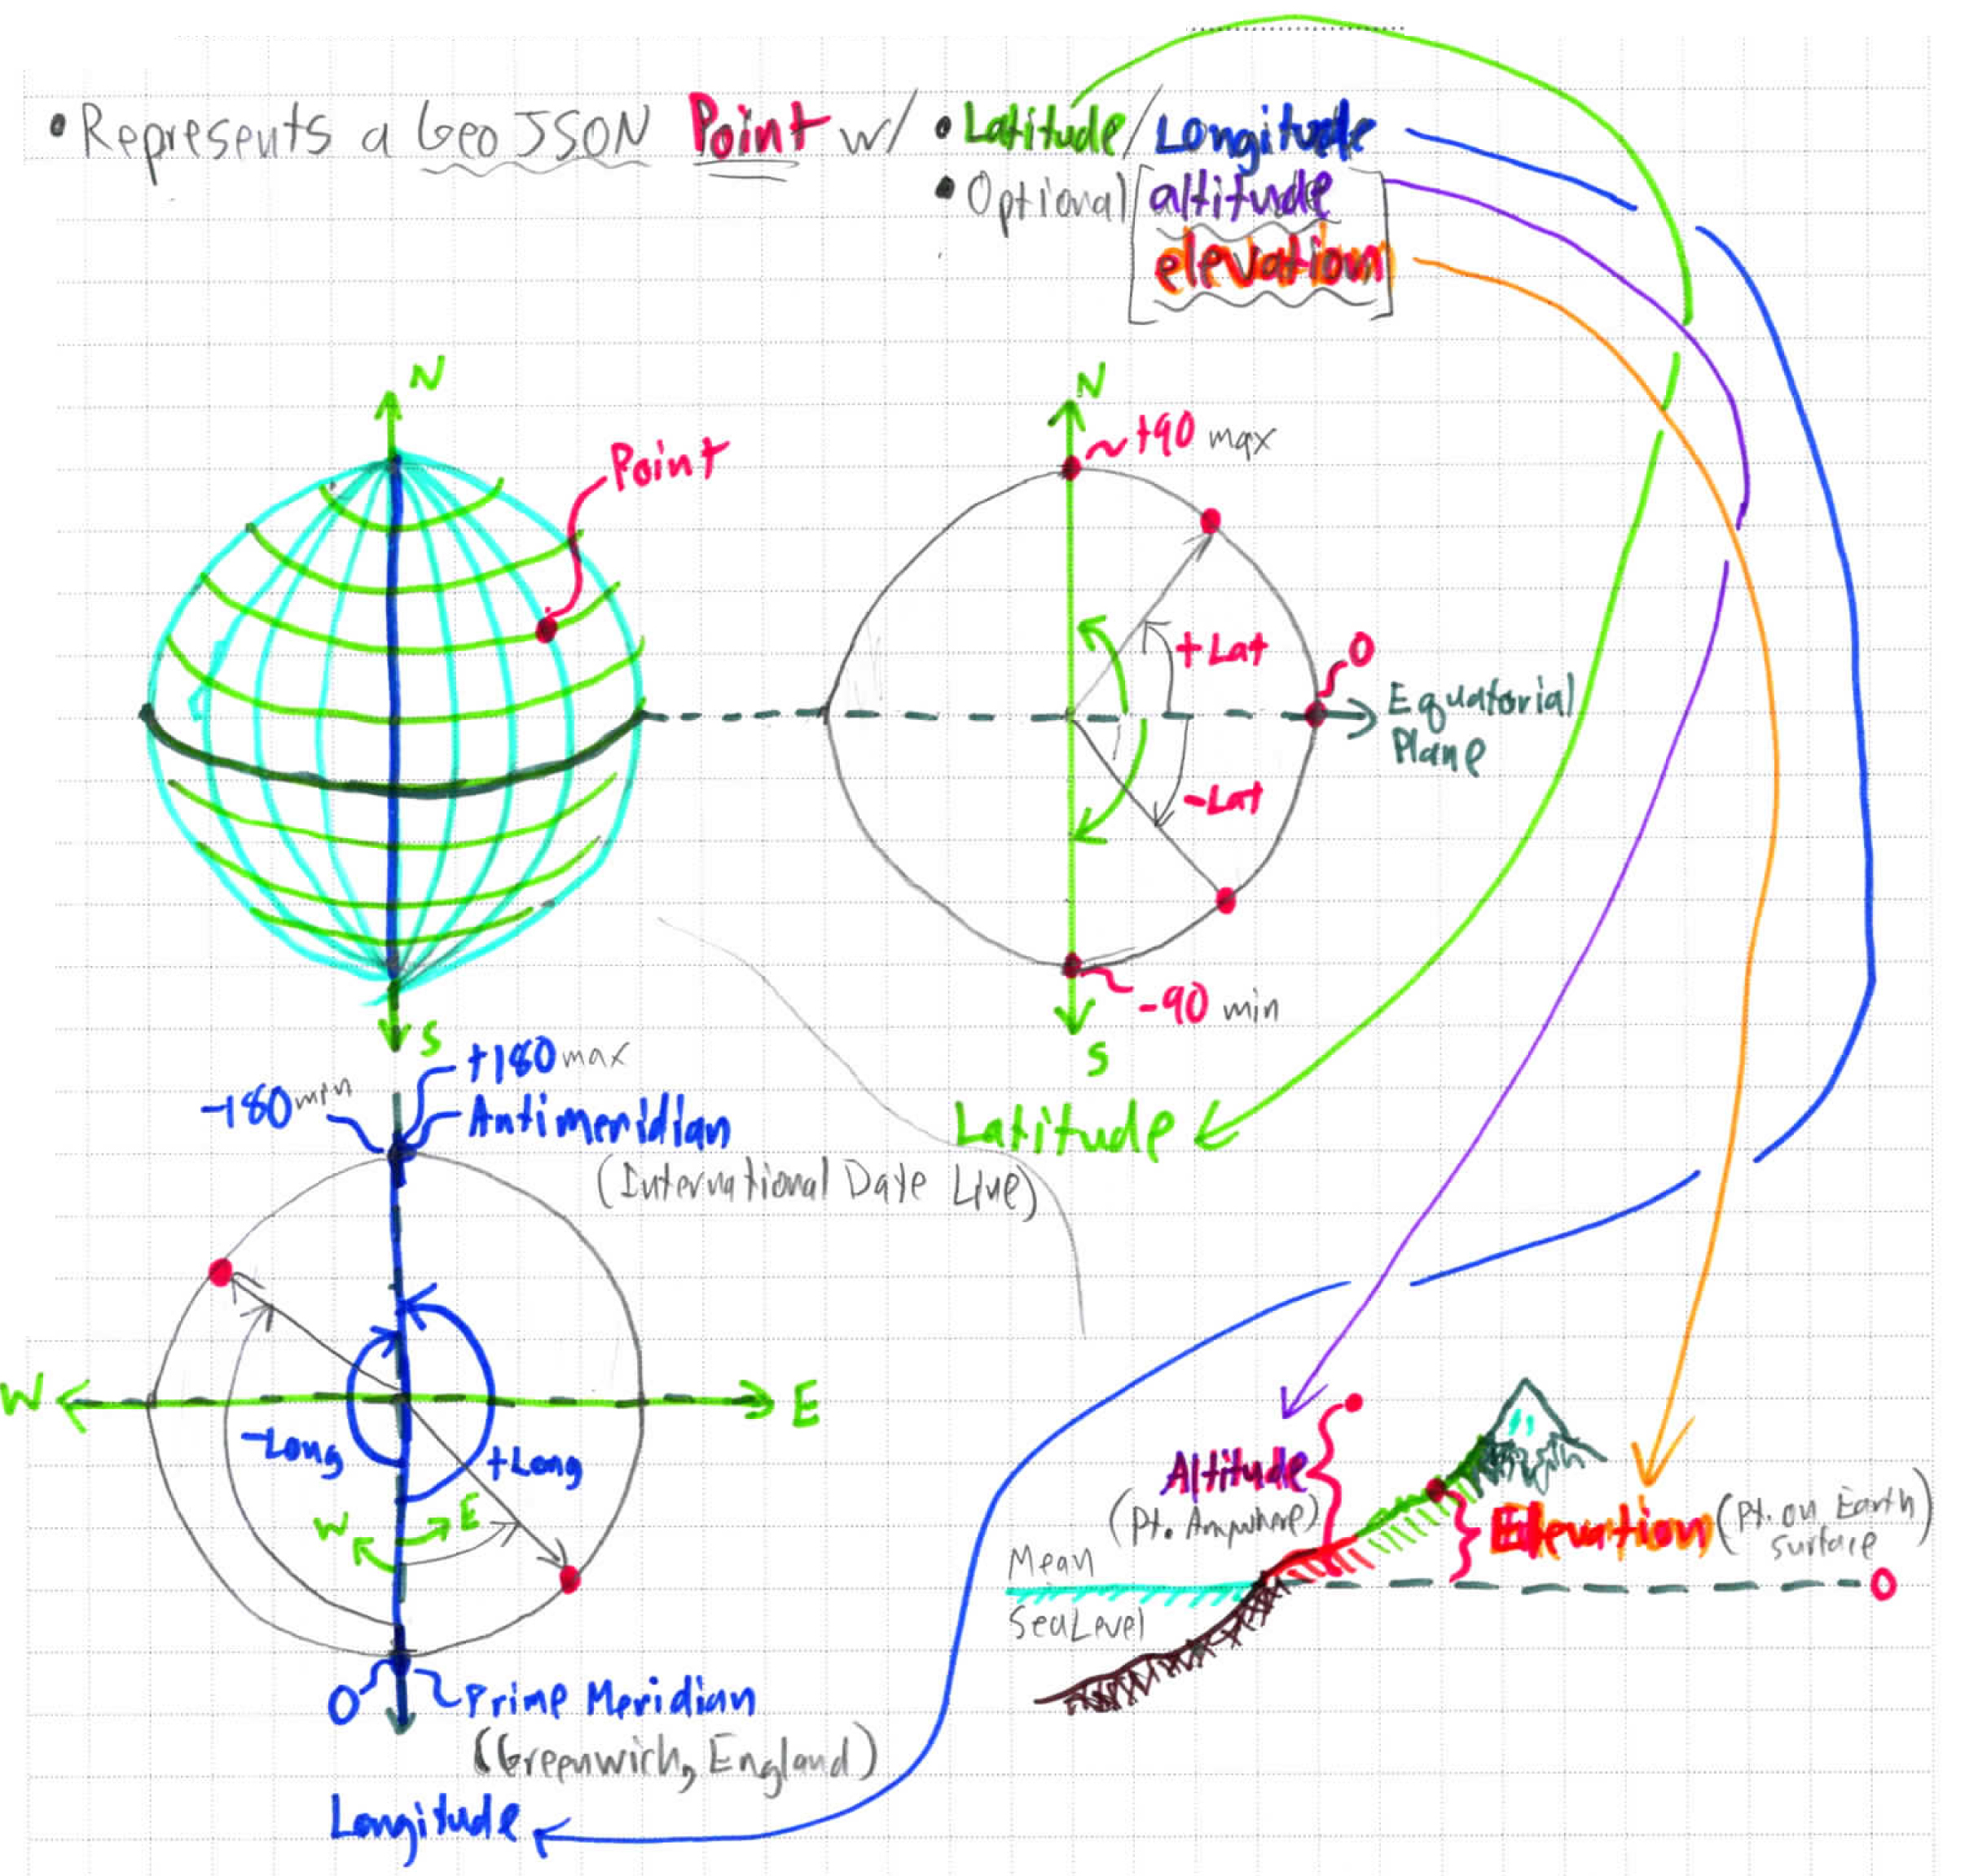 • Represents a GeoJSON Point w/ • Latitude/Longitude
• Optional [altitude
elevation]
N
Point
S
N
~+90 max
+Lat
0
Equatorial
Plane
-Lat
-90 min
S
Latitude
-180 min
+180 max
Antimeridian
(International Date Line)
W
E
-Long
+Long
W
E
0
Prime Meridian
(Greenwich, England)
Longitude
Altitude
(Pt. Anywhere)
Elevation (Pt. on Earth
Surface)
Mean
Sea Level
0